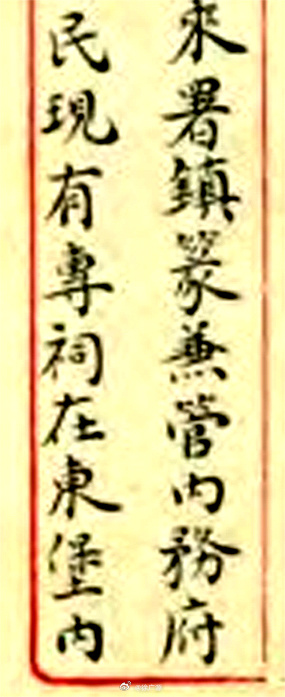 來署鎮篆兼管內務府
民現有專祠在東堡內